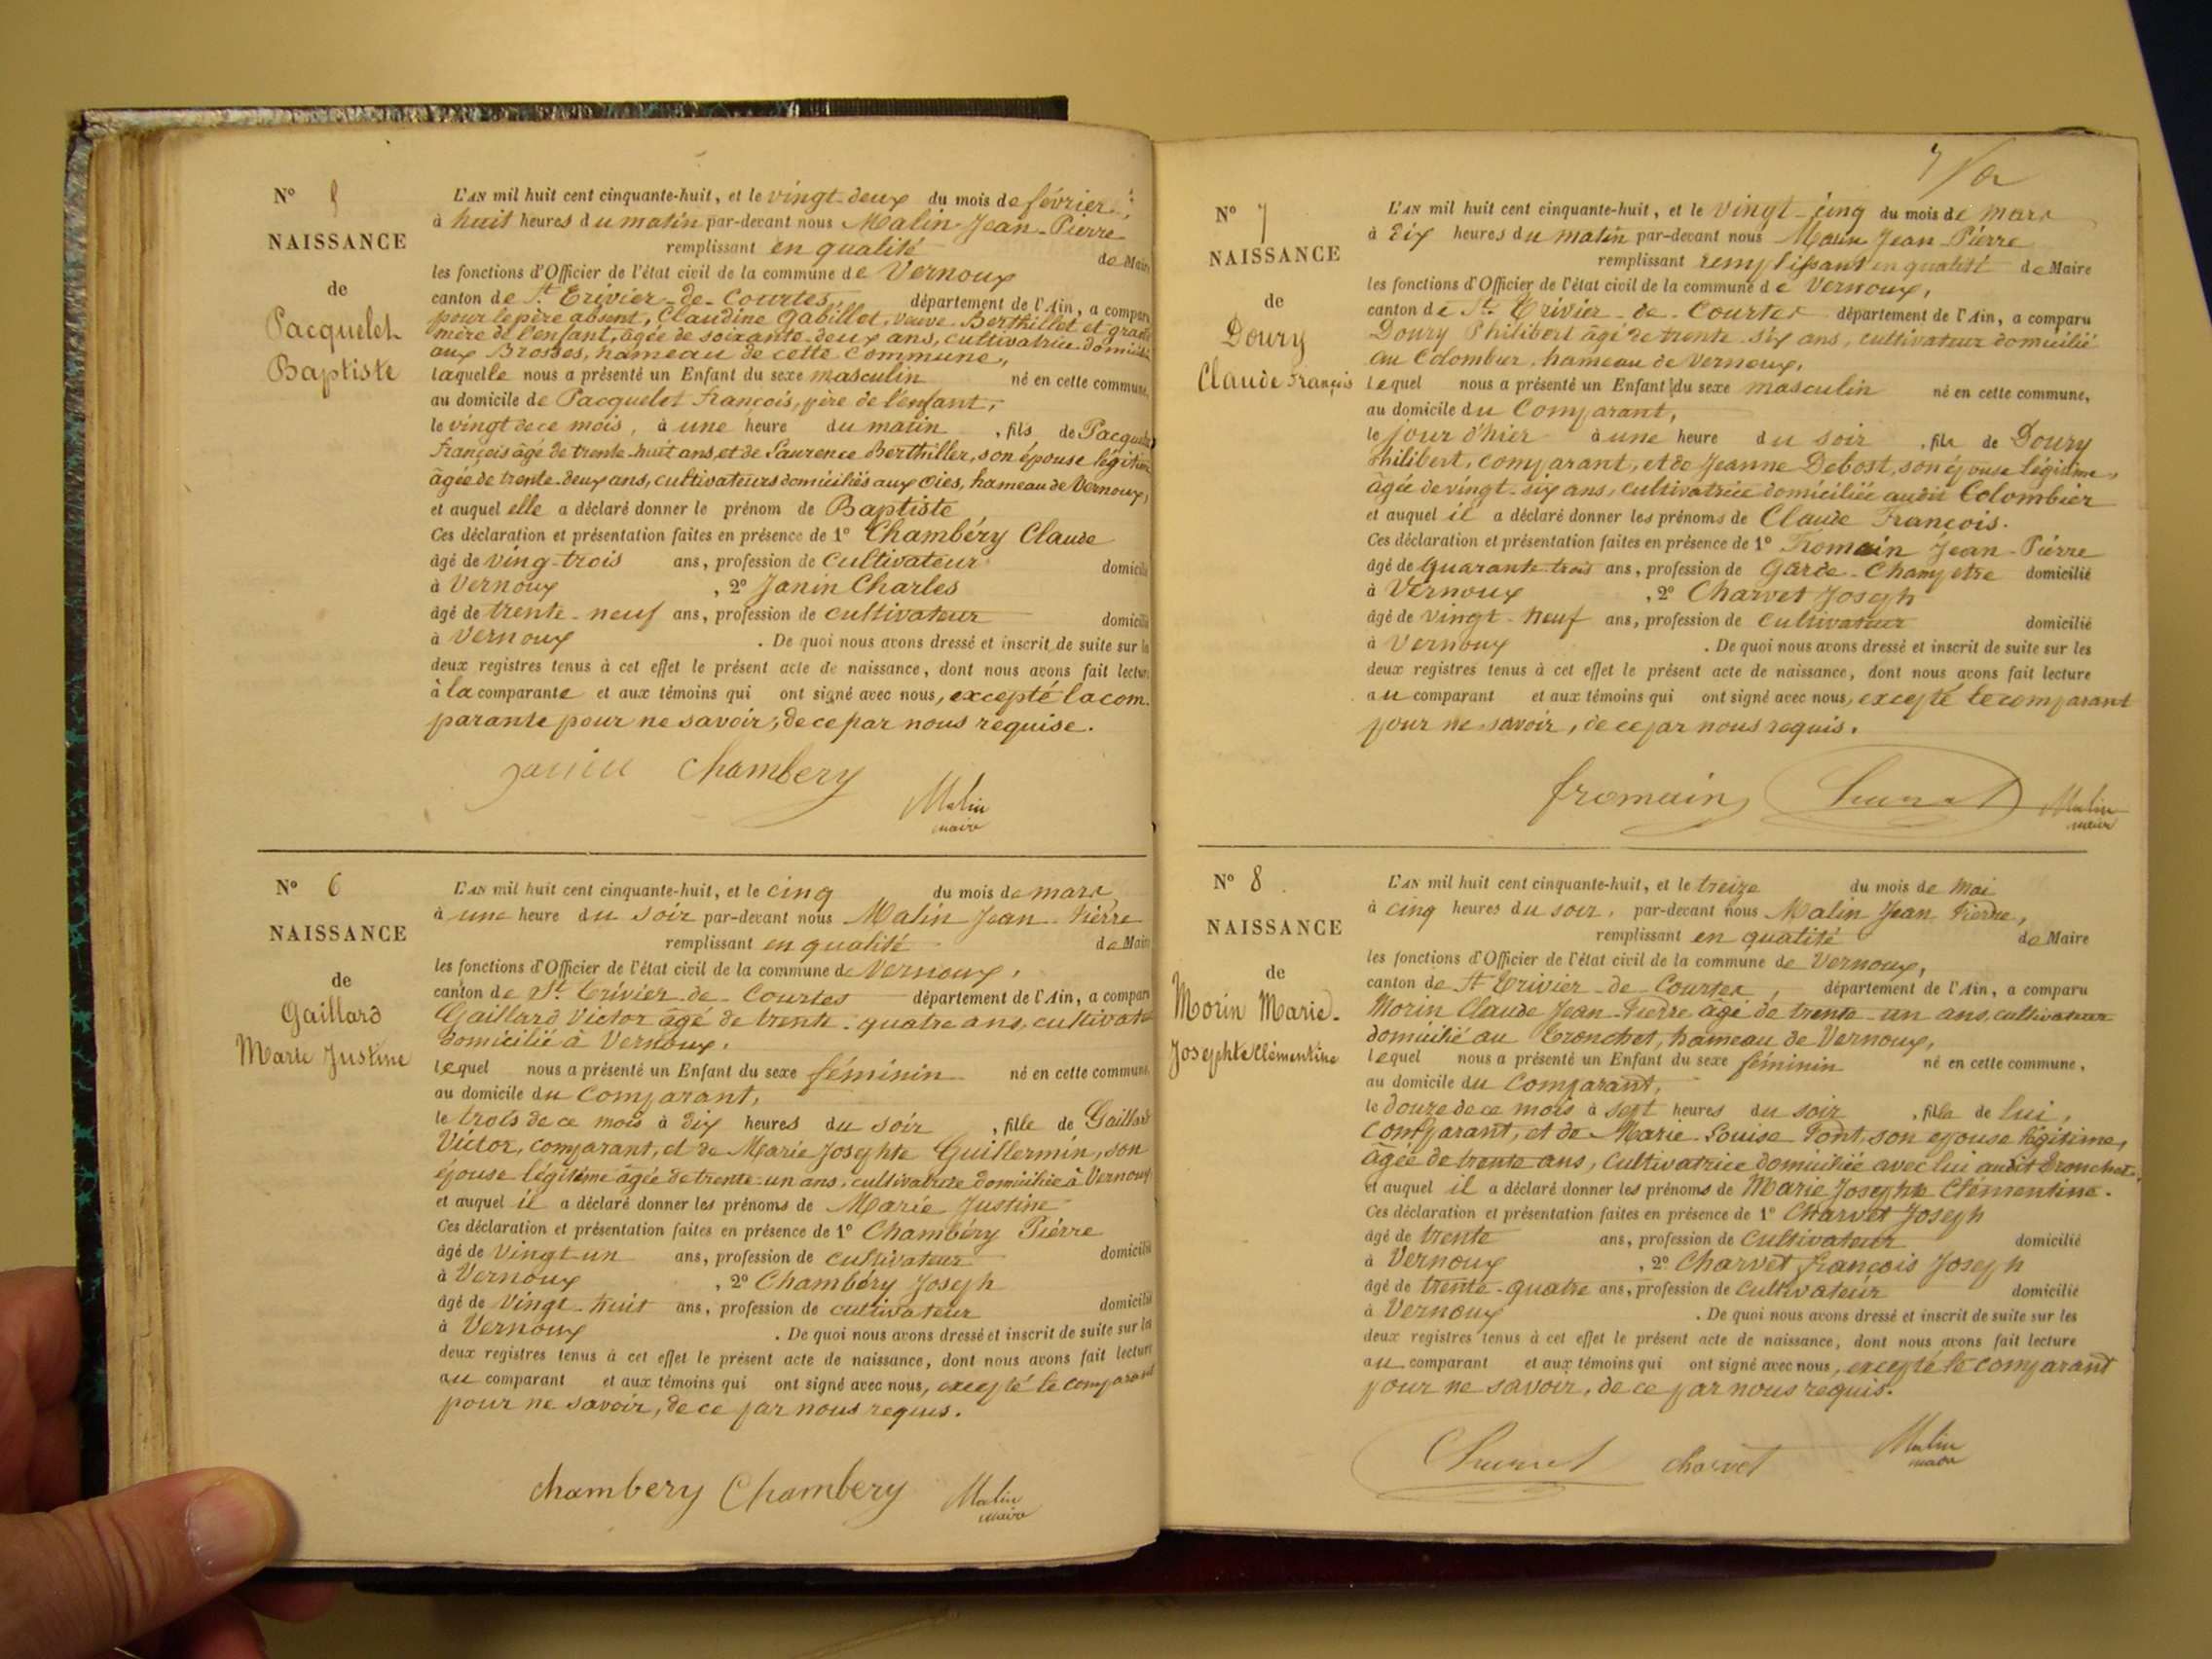 N° 5
NAISSANCE
de
Pacquelet
Baptiste
L'AN mil huit cent cinquante-huit, et le vingt-deux du mois de février,
à huit heures du matin par-devant nous Malin Jean-Pierre
remplissant en qualité de Maire
les fonctions d'Officier de l'état civil de la commune de Vernoux
canton de St Trivier-de-Courtes département de l'Ain, a comparu
pour le père absent, Claudine Gabillet, veuve Berthillet et grand
mère de l'enfant, âgée de soixante-deux ans, cultivatrice domiciliée
aux Brosses, hameau de cette commune,
laquelle nous a présenté un Enfant du sexe masculin né en cette commune,
au domicile de Pacquelet François, père de l'enfant,
le vingt de ce mois, à une heure du matin, fils de Pacquelet
François âgé de trente-huit ans, et de Laurence Berthiller, son épouse légitime
âgée de trente-deux ans, cultivateurs domiciliés aux Oies, hameau de Vernoux,
et auquel elle a déclaré donner le prénom de Baptiste
Ces déclaration et présentation faites en présence de 1° Chambéry Claude
âgé de ving-trois ans, profession de cultivateur domicilié
à Vernoux, 2° Janin Charles
âgé de trente-neuf ans, profession de cultivateur domicilié
à Vernoux. De quoi nous avons dressé et inscrit de suite sur les
deux registres tenus à cet effet le présent acte de naissance, dont nous avons fait lecture
à la comparante et aux témoins qui ont signé avec nous, excepté la com-
parante pour ne savoir, de ce par nous requise.
Janin Chambery Malin
maire
N° 6
NAISSANCE
de
Gaillard
Marie Justine
L'AN mil huit cent cinquante-huit, et le cinq du mois de mars
à une heure du soir par-devant nous Malin Jean-Pierre
remplissant en qualité de Maire
les fonctions d'Officier de l'état civil de la commune de Vernoux,
canton de St Trivier-de-Courtes département de l'Ain, a comparu
Gaillard Victor âgé de trente-quatre ans, cultivateur
domicilié à Vernoux,
lequel nous a présenté un Enfant du sexe féminin né en cette commune,
au domicile du comparant,
le trois de ce mois à dix heures du soir, fille de Gaillard
Victor, comparant, et de Marie Josephte Guillermin, son
épouse légitime âgée de trente-un ans, cultivatrice domiciliée à Vernoux
et auquel il a déclaré donner les prénoms de Marie Justine
Ces déclaration et présentation faites en présence de 1° Chambéry Pierre
âgé de vingt-un ans, profession de cultivateur domicilié
à Vernoux, 2° Chambéry Joseph
âgé de vingt-huit ans, profession de cultivateur domicilié
à Vernoux. De quoi nous avons dressé et inscrit de suite sur les
deux registres tenus à cet effet le présent acte de naissance, dont nous avons fait lecture
au comparant et aux témoins qui ont signé avec nous, excepté le comparant
pour ne savoir, de ce par nous requis.
Chambery Chambery Malin
maire
N° 7
NAISSANCE
de
Doury
Claude François
L'AN mil huit cent cinquante-huit, et le vingt-cinq du mois de mars
à dix heures du matin par-devant nous Malin Jean-Pierre
remplissant remplissant en qualité de Maire
les fonctions d'Officier de l'état civil de la commune de Vernoux,
canton de St Trivier-de-Courtes département de l'Ain, a comparu
Doury Philibert âgé de trente-six ans, cultivateur domicilié
au Colombier, hameau de Vernoux,
lequel nous a présenté un Enfant du sexe masculin né en cette commune,
au domicile du comparant,
le jour d'hier à une heure du soir, fils de Doury
Philibert, comparant, et de Jeanne Debost, son épouse légitime,
âgée de vingt-six ans, cultivatrice domiciliée audit Colombier
et auquel il a déclaré donner les prénoms de Claude François.
Ces déclaration et présentation faites en présence de 1° Fromain Jean-Pierre
âgé de quarante-trois ans, profession de Garde-Champetre domicilié
à Vernoux, 2° Charvet Joseph
âgé de vingt-neuf ans, profession de cultivateur domicilié
à Vernoux. De quoi nous avons dressé et inscrit de suite sur les
deux registres tenus à cet effet le présent acte de naissance, dont nous avons fait lecture
au comparant et aux témoins qui ont signé avec nous, excepté le comparant
pour ne savoir, de ce par nous requis.
fromain Charvet Malin
maire
N° 8
NAISSANCE
de
Morin Marie-
Josephte Clémentine
L'AN mil huit cent cinquante-huit, et le treize du mois de Mai
à cinq heures du soir, par-devant nous Malin Jean-Pierre,
remplissant en qualité de Maire
les fonctions d'Officier de l'état civil de la commune de Vernoux,
canton de St Trivier-de-Courtes, département de l'Ain, a comparu
Morin Claude Jean-Pierre âgé de trente-un ans, cultivateur
domicilié au Tronchet, hameau de Vernoux,
lequel nous a présenté un Enfant du sexe féminin né en cette commune,
au domicile du comparant,
le douze de ce mois à sept heures du soir, fille de lui,
comparant, et de Marie-Louise Pont, son epouse légitime,
âgée de trente ans, cultivatrice domiciliée avec lui audit Tronchet,
et auquel il a déclaré donner les prénoms de Marie Josephte Clémentine.
Ces déclaration et présentation faites en présence de 1° Charvet Joseph
âgé de trente ans, profession de cultivateur domicilié
à Vernoux, 2° Charvet François Joseph
âgé de trente-quatre ans, profession de cultivateur domicilié
à Vernoux. De quoi nous avons dressé et inscrit de suite sur les
deux registres tenus à cet effet le présent acte de naissance, dont nous avons fait lecture
au comparant et aux témoins qui ont signé avec nous, excepté le comparant
pour ne savoir, de ce par nous requis.
Charvet charvet Malin
maire